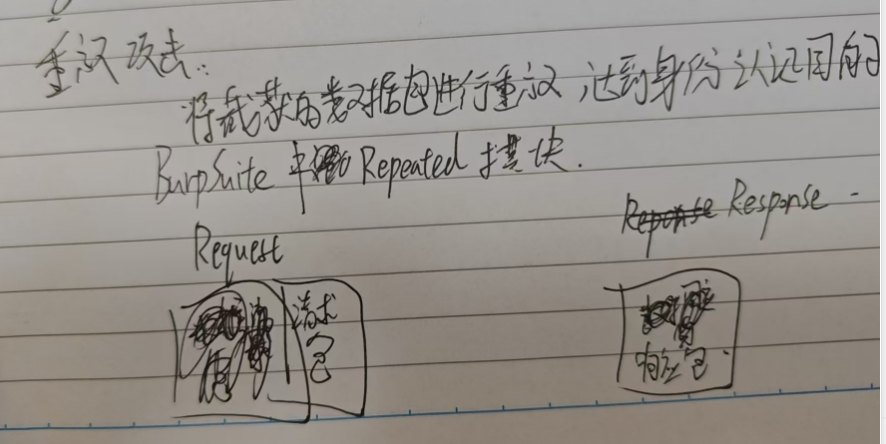 重放攻击:
将截获的数据包进行重放,达到身份认证目的
BurpSuite 中 Repeated 模块.
Request
Response
请求
包
响应包.